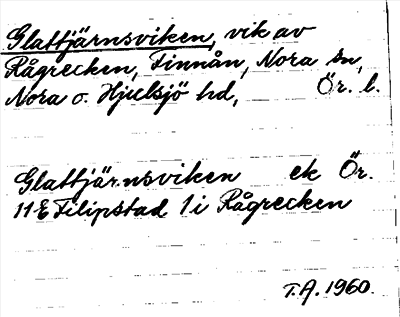 Glattjärnsviken, vik av
Rågrecken, Finnån, Nora sn,
Nora o. Hjulsjö hd, Ör. l.
Glattjärnsviken ek Ör.
11 E Filipstad 1 i Rågrecken
T.A. 1960.